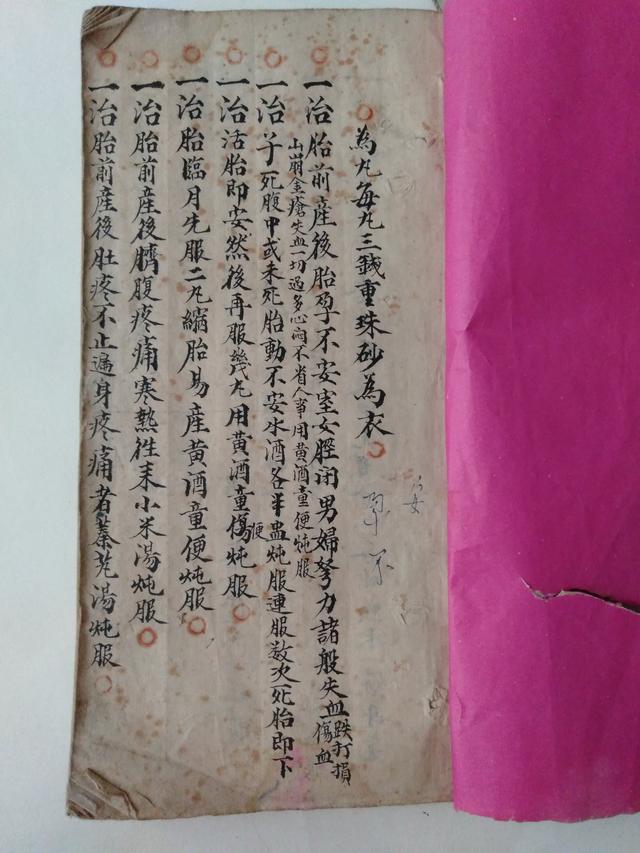 為九每九三錢重珠砂為衣
一治胎前產後胎孕不安室女脛闭男婦努力諸般失血跌打損傷血
山崩金瘡失血一切過多心闷不省人事用黃酒童便炖服
一治子死腹中或未死胎動不安水酒各半盅炖服連服数次死胎即下
一治活胎即安然後再服幾九用黃酒童便炖服
一治胎臨月先服二九縮胎易產黃酒童便炖服
一治胎前產後臍腹疼痛寒熱往来小米湯炖服
一治胎前產後肚疼不止遍身疼痛者秦艽湯炖服